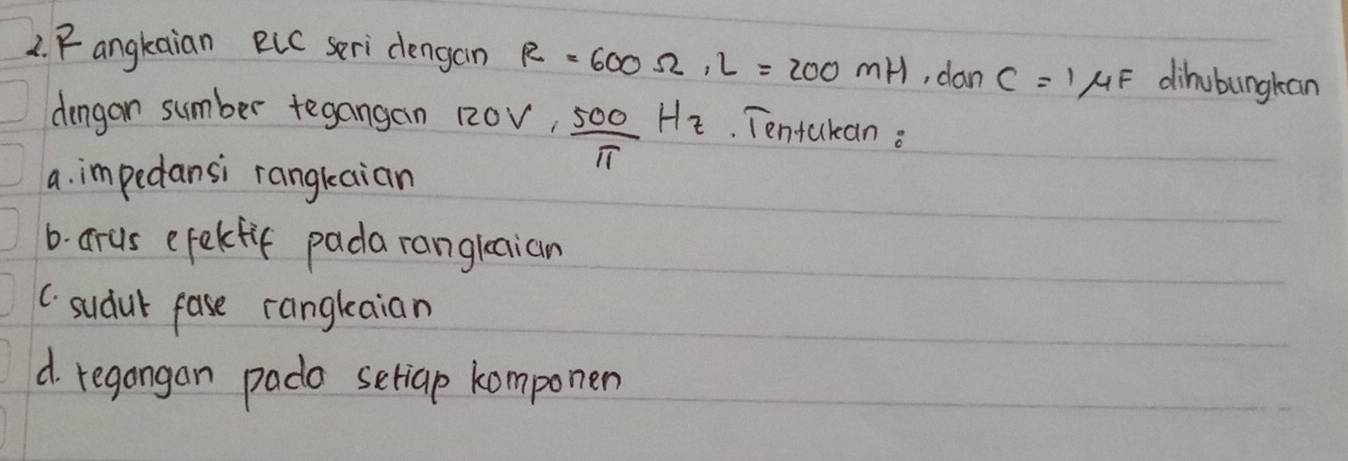 2. Rangkaian RLC seri dengan R = 600 Ω, L = 200 mH, dan C = 1 μF dihubungkan
dengan sumber tegangan 120V, 500/π Hz. Tentukan:
a. impedansi rangkaian
b. arus efektif pada rangkaian
c. sudut fase rangkaian
d. tegangan pada setiap komponen